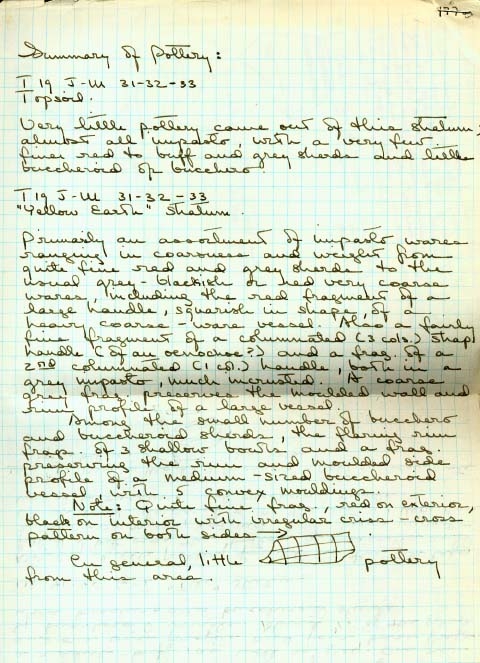 Summary of Pottery:
T 19 J-M 31-32-33
Topsoil.
Very little pottery came out of this stratum;
almost all impasto, with a very few
finer red to buff and grey sherds and little
buccheroid or bucchero
T 19 J-M 31-32-33
"Yellow Earth" Stratum.
Primarily an assortment of impasto wares
ranging in coarseness and weight from
quite fine red and grey sherds to the
usual grey-blackish or red very coarse
wares, including the red fragment of a
large handle, squarish in shape, of a
heavy coarse-ware vessel. Also a fairly
fine fragment of a columnated (3 cols.) strap
handle (of an oenochoe?) and a frag. of a
2nd columnated (1 col.) handle, both in a
grey impasto, much incrusted. A coarse
grey frag. preserves the moulded wall and
rim profile of a large vessel.
Among the small number of bucchero
and buccheroid sherds, the flaring rim
frags. of 3 shallow bowls and a frag.
preserving the rim and moulded side
profile of a medium-sized buccheroid
vessel with 5 convex mouldings.
Note: Quite fine frag., red on exterior,
black on interior with irregular criss-cross
pattern on both sides
In general, little pottery
from this area.